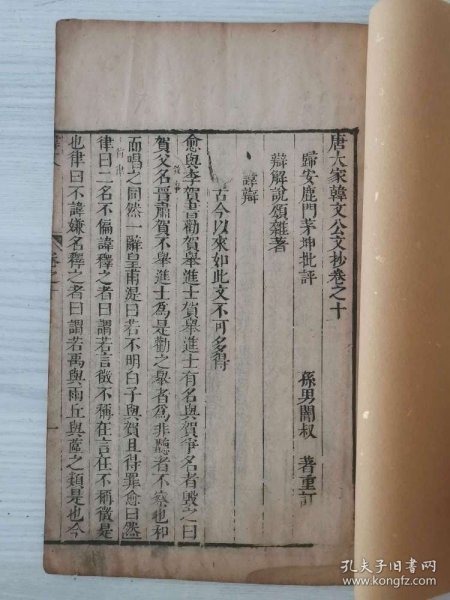 唐大家韓文公文抄卷之十
歸安鹿門茅坤批評
孫男闇叔 著重訂
辯解說頌雜著
諱辯
古今以來如此文不可多得
愈與李賀書勸賀舉進士賀舉進士有名與賀爭名者毀之曰
賀父名晋肅賀不舉進士為是勸之舉者為非聽者不察也和
而唱之同然一辭皇甫湜曰若不明白子與賀且得罪愈曰然
律曰二名不偏諱釋之者曰謂若言徵不稱在言在不稱徵是
也律曰不諱嫌名釋之者曰謂若禹與雨丘與蓲之類是也今
孔夫子旧书网
book.kongfz.com